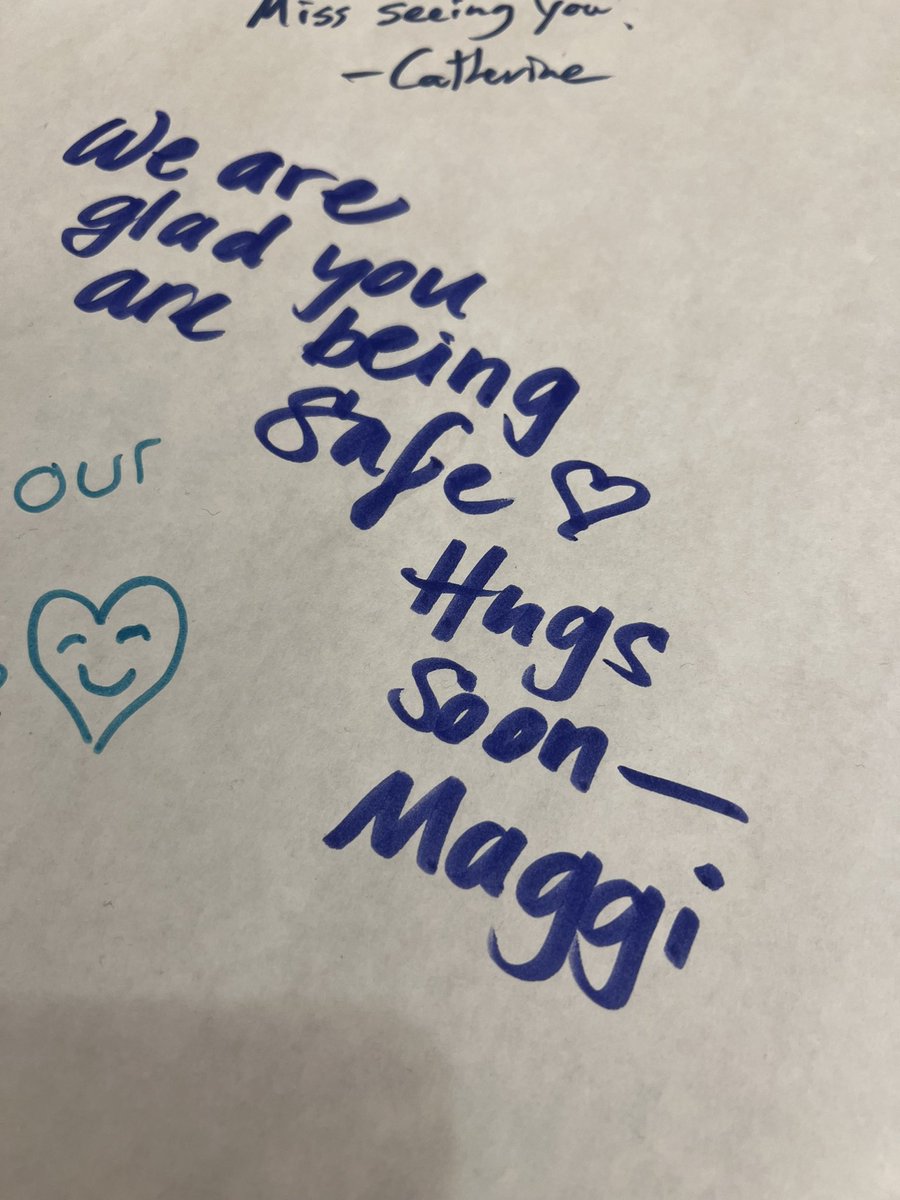 Miss seeing you.
-Catherine
We are
glad you
are being
safe ♡
our
Hugs
soon—
Maggi